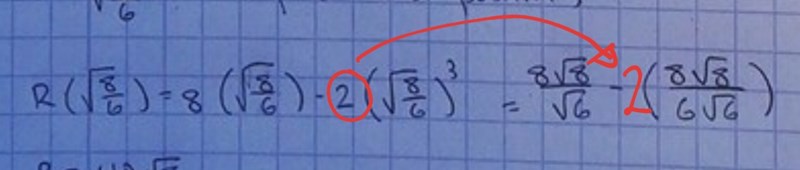 √6
R(√8/6) = 8(√8/6) - 2(√8/6)³ = 8√8/√6 - 2(8√8/6√6)